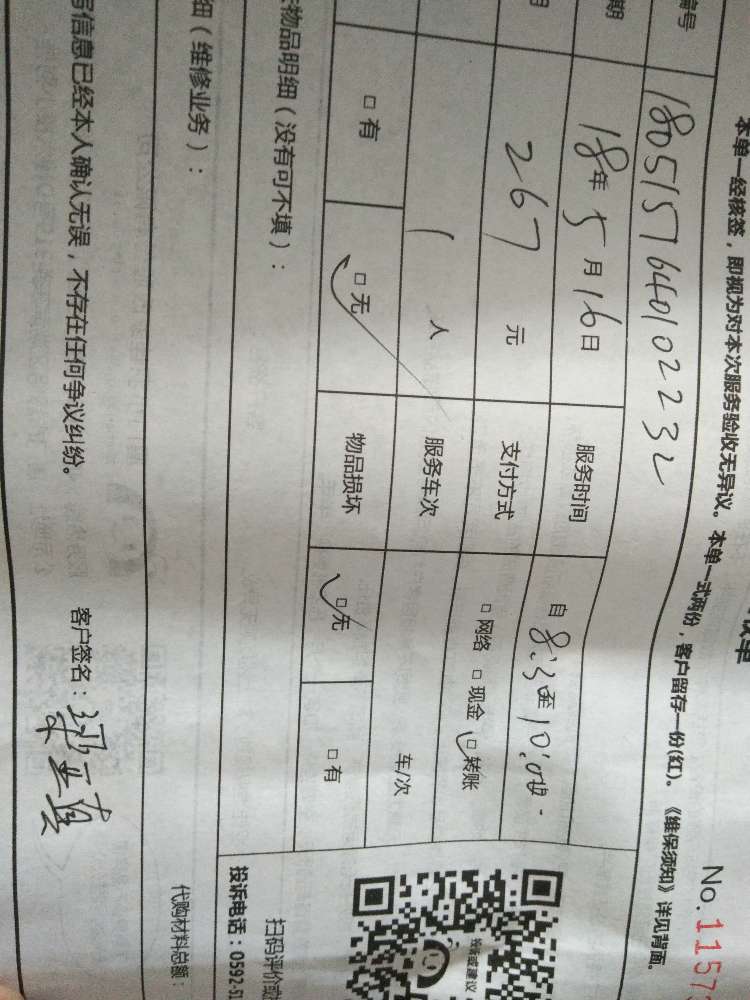 收单
No.1157
本单一经核签，即视为对本次服务验收无异议。本单一式两份，客户留存一份(红)。《维保须知》详见背面。
编号 180515764010223
期 18年5月16日 服务时间 自8:3至10:00
267元 支付方式 □网络 □现金 □转账
1人 服务车次 车/次
□有 □无 物品损坏 □无 □有
物品明细（没有可不填）：
细（维修业务）：
代购材料总额：
信息已经本人确认无误，不存在任何争议纠纷。 客户签名：
扫码评价
投诉电话：0592-51